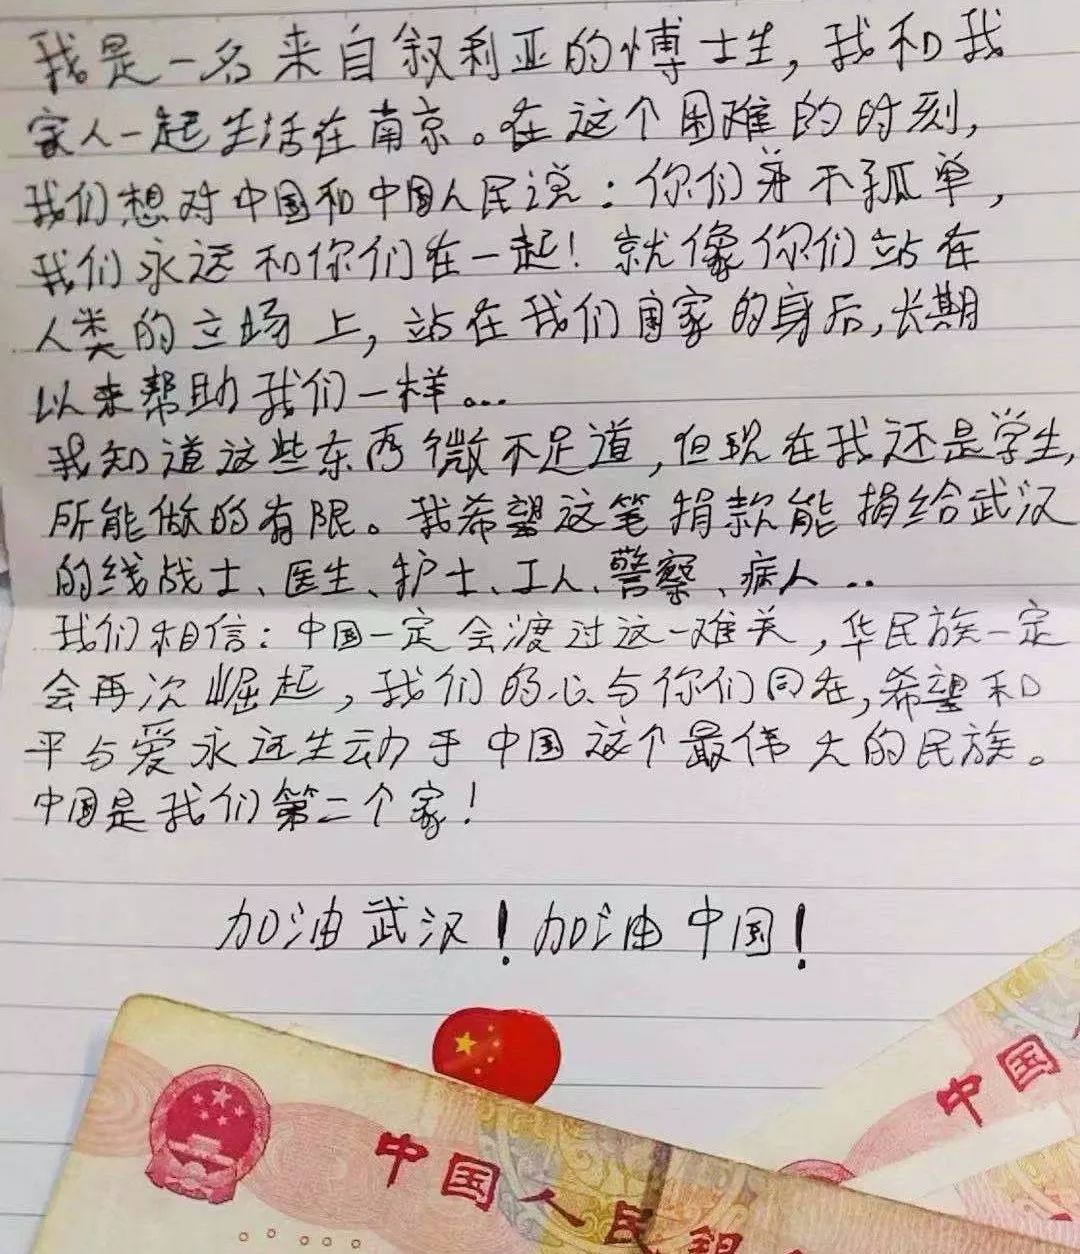 我是一名来自叙利亚的博士生，我和我
家人一起生活在南京。在这个困难的时刻，
我们想对中国和中国人民说：你们并不孤单，
我们永远和你们在一起！就像你们站在
人类的立场上，站在我们国家的身后，长期
以来帮助我们一样。..
我知道这些东西微不足道，但现在我还是学生，
所能做的有限。我希望这笔捐款能捐给武汉
的线战士、医生、护士、工人、警察、病人..
我们相信：中国一定会渡过这一难关，华民族一定
会再次崛起，我们的心与你们同在，希望和
平与爱永远生动于中国这个最伟大的民族。
中国是我们第二个家！
加油武汉！加油中国！
中国
中国人民银